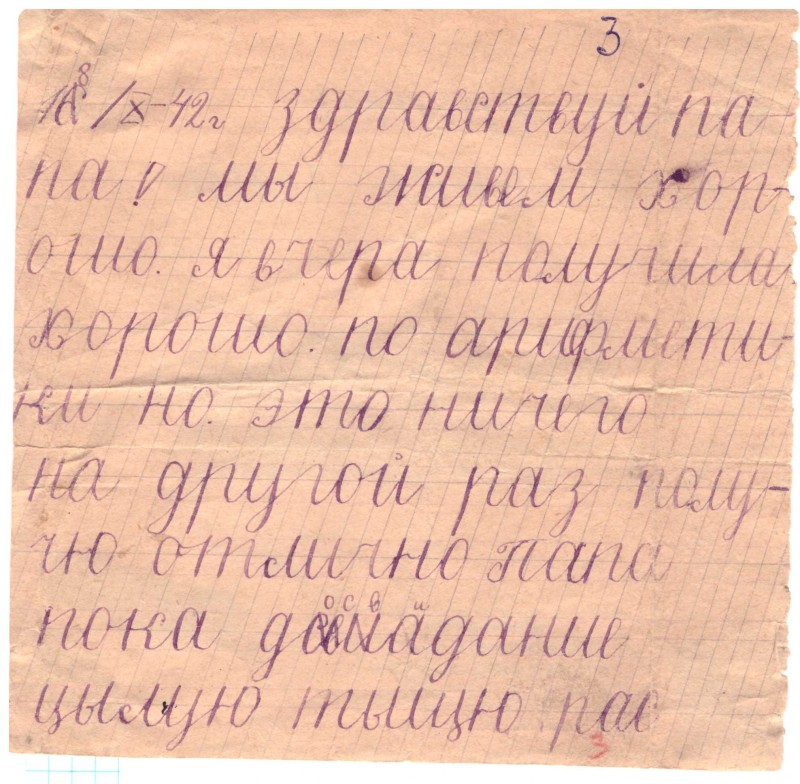 3
18/X-42г здравствуй па-
па! мы живем хор-
ошо. я вчера получила
хорошо. по арифмети-
ки но. это ничего
на другой раз полу-
чю отлично папа
пока
цылую тыщю рас
3